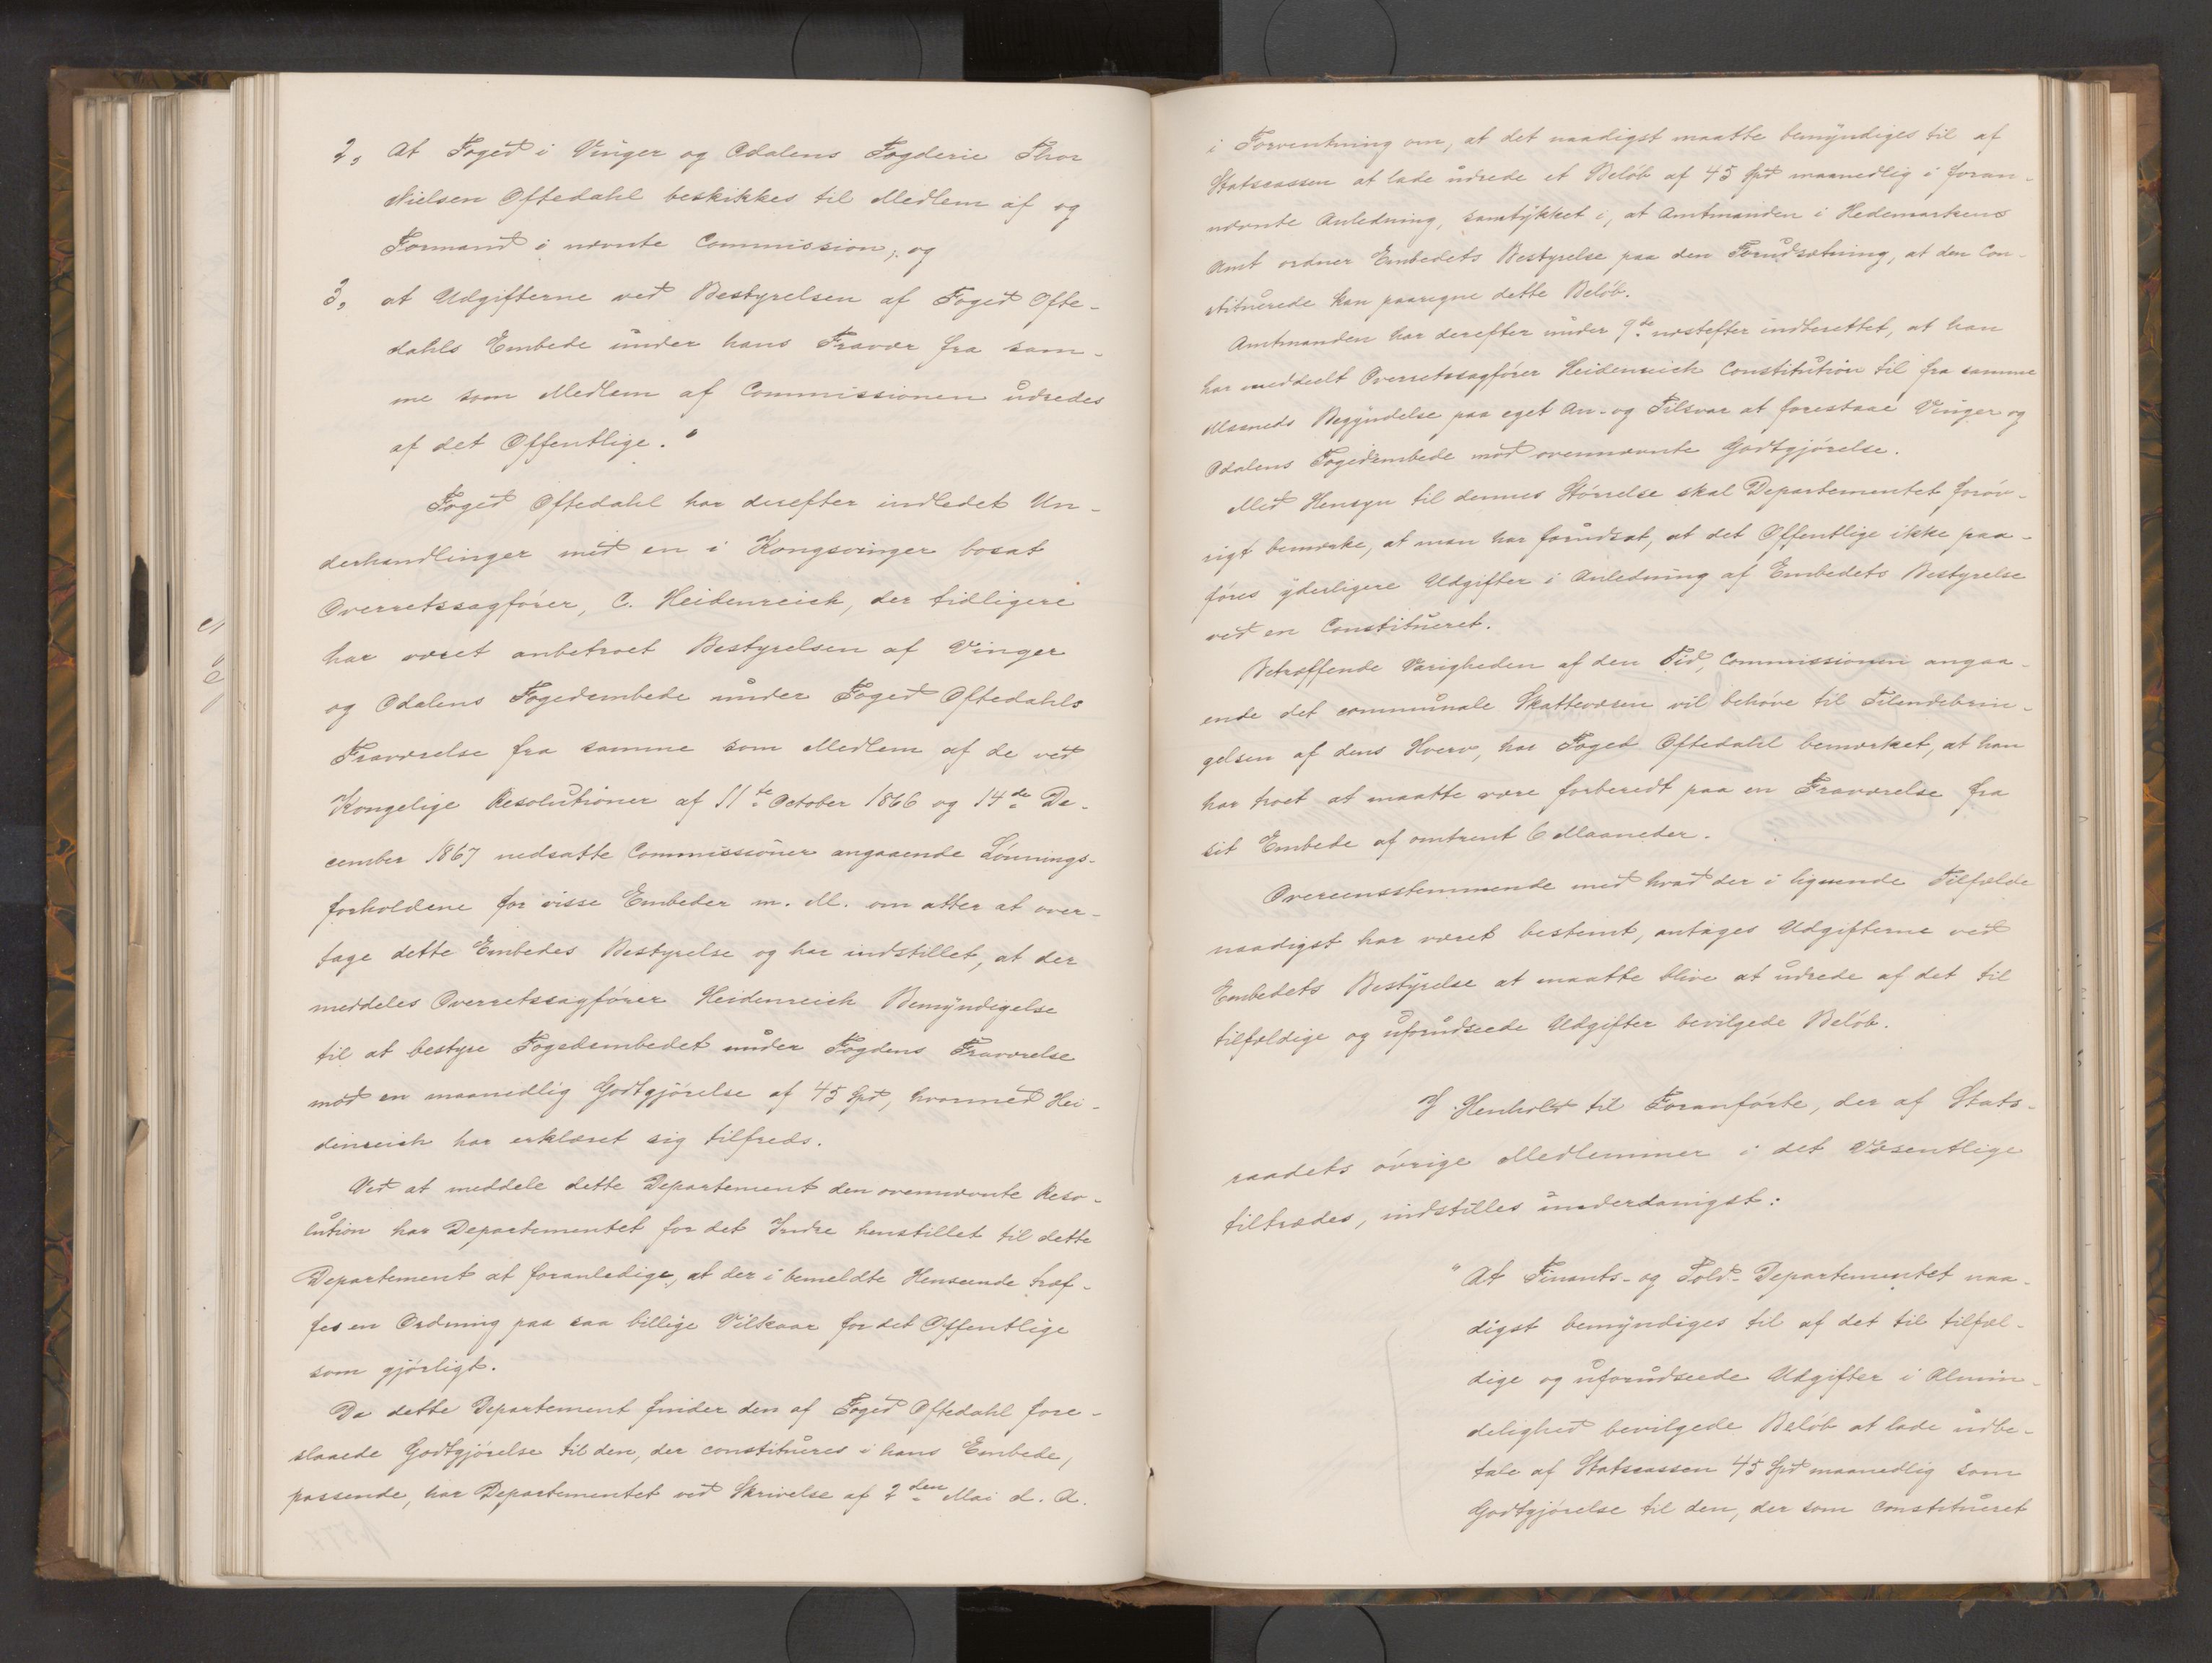 2, At Foged i Vinger og Odalens Fogderie Thor
Nielsen Oftedahl beskikkes til Medlem af og
Formand i nævnte Commission; og
3, at Udgifterne ved Bestyrelsen af Foged Ofte-
dahls Embede under hans Fravær fra sam-
me som Medlem af Commissionen udredes
af det Offentlige."
Foged Oftedahl har derefter indledet Un-
derhandlinger med en i Kongsvinger bosat
Overretssagfører, C. Heidenreich, der tidligere
har været anbetroet Bestyrelsen af Vinger
og Odalens Fogedembede under Foged Oftedahls
Fraværelse fra samme som Medlem af de ved
Kongelige Resolutioner af 11te October 1866 og 14de De-
cember 1867 nedsatte Commissioner angaaende Lønnings-
forholdene for visse Embeder m. M. om atter at over-
tage dette Embedes Bestyrelse og har indstillet, at der
meddeles Overretssagfører Heidenreich Bemyndigelse
til at bestyre Fogedembedet under Fogdens Fraværelse
mod en maanedlig Godtgjørelse af 45 Spd, hvormed Hei-
denreich har erklæret sig tilfreds.
Ved at meddele dette Departement den ovennævnte Reso-
lution har Departementet for det Indre henstillet til dette
Departement at foranledige, at der i bemeldte Henseende træf-
fes en Ordning paa saa billige Vilkaar for det Offentlige
som gjørligt.
Da dette Departement finder den af Foged Oftedahl fore-
slaaede Godtgjørelse til den, der constitueres i hans Embede,
passende, har Departementet ved Skrivelse af 2den Mai d. A.
i Forventning om, at det naadigst maatte bemyndiges til af
Statscassen at lade udrede et Beløb af 45 Spd maanedlig i foran-
nævnte Anledning, samtykket i, at Amtmanden i Hedemarkens
Amt ordner Embedets Bestyrelse paa den Forudsætning, at den Con-
stituerede kan paaregne dette Beløb.
Amtmanden har derefter under 9de næstefter indberettet, at han
har meddeelt Overretssagfører Heidenreich Constitution til fra samme
Maaneds Begyndelse paa eget An- og Tilsvar at forestaae Vinger og
Odalens Fogedembede mod ovennævnte Godtgjørelse.
Med Hensyn til dennes Størrelse skal Departementet forøv-
rigt bemærke, at man har forudsat, at det Offentlige ikke paa-
føres yderligere Udgifter i Anledning af Embedets Bestyrelse
ved en Constitueret.
Betræffende Varigheden af den Tid, Commissionen angaa-
ende det communale Skattevæsen vil behøve til Tilendebrin-
gelsen af dens Hverv, har Foged Oftedahl bemærket, at han
har troet at maatte være forberedt paa en Fraværelse fra
sit Embede af omtrent 6 Maaneder.
Overeensstemmende med hvad der i lignende Tilfælde
naadigst har været bestemt, antages Udgifterne ved
Embedets Bestyrelse at maatte blive at udrede af det til
tilfældige og uforudseede Udgifter bevilgede Beløb.
I Henhold til Foranførte, der af Stats-
raadets øvrige Medlemmer i det Væsentlige
tiltrædes, indstilles underdanigst:
"At Finants- og Told-Departementet naa-
digst bemyndiges til af det til tilfæl-
dige og uforudseede Udgifter i Almin-
delighed bevilgede Beløb at lade udbe-
tale af Statscassen 45 Spd maanedlig som
Godtgjørelse til den, der som constitueret